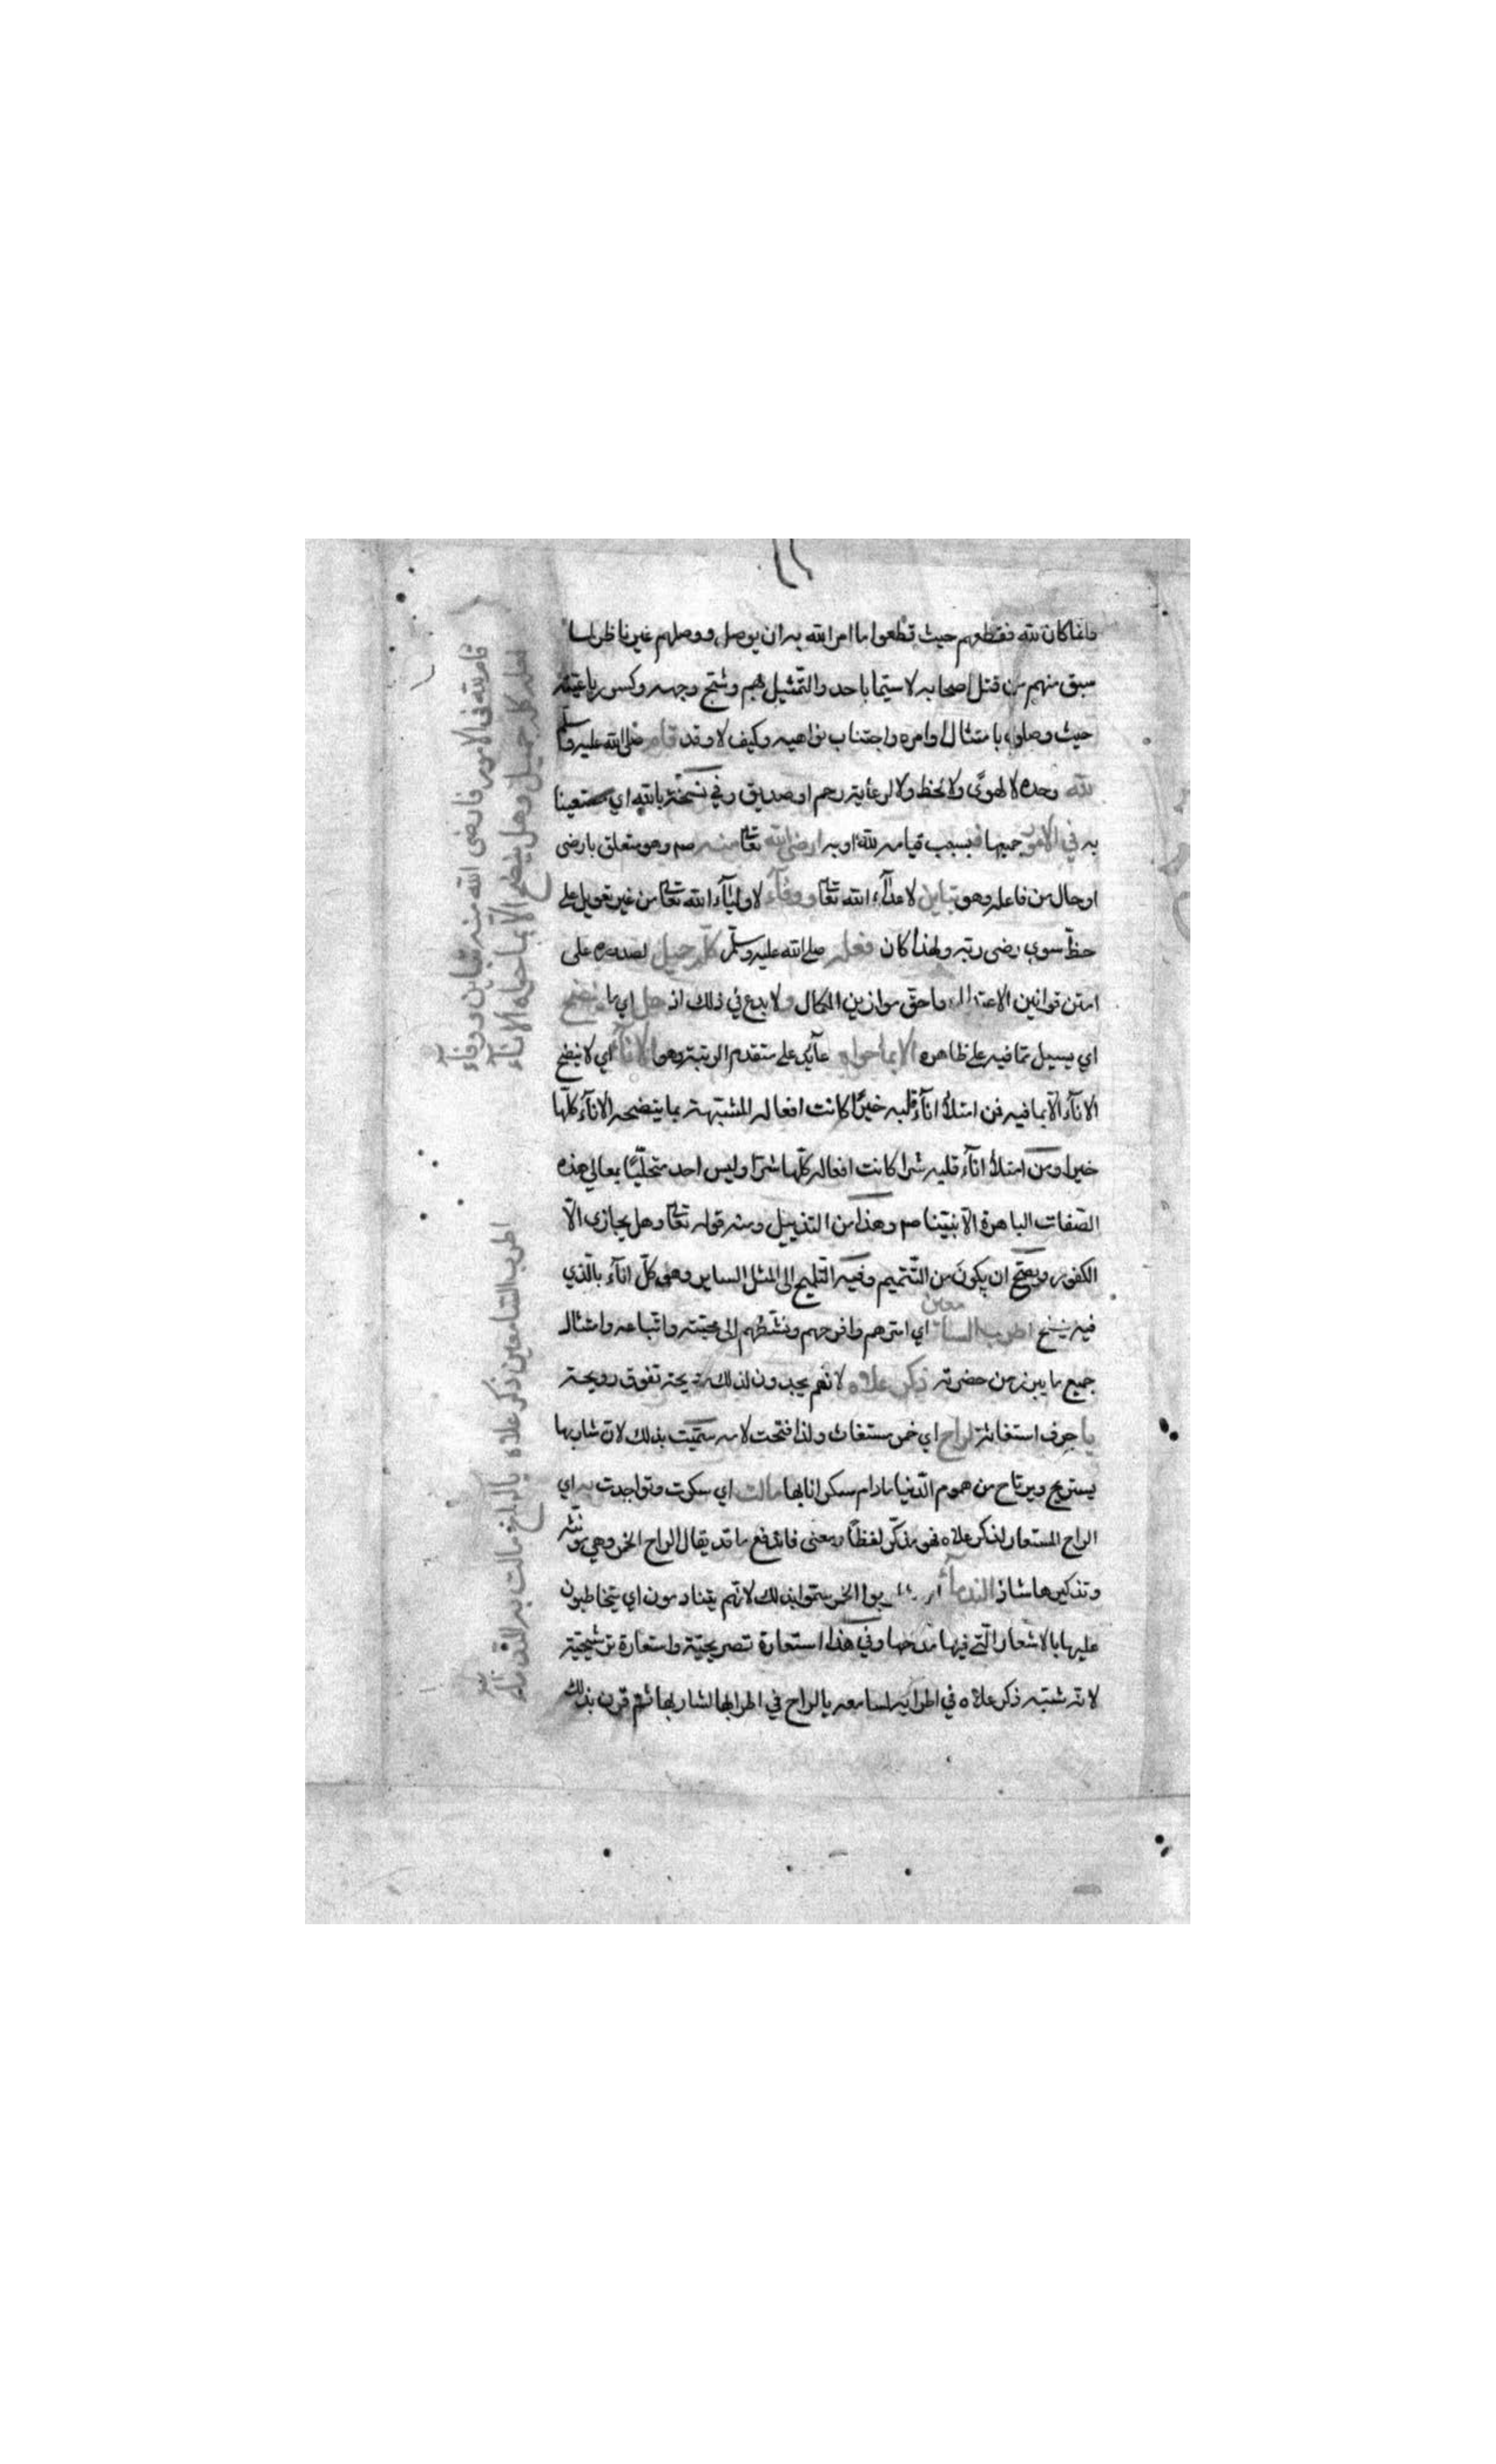 وانما كان لله فقطعهم حيث قطعوا ما امر الله به ان يوصل ووصلهم غير ناظر لما
سبق منهم من قتل اصحابه لا سيما باحد والتمثيل بهم وشج وجهه وكسر رباعيته
حيث وصلوه بامتثال اوامره واجتناب نواهيه وكيف لا وقد قام صلى الله عليه وسلم
لله وحده لا لهوى ولا لحظ ولا لرعاية رحم او صديق وفي نسخة بالله اي مستعينا
به في الامور جميعها فبسبب قيامه لله او به ارضى الله تعالى منه صم وهو متعلق بارضى
او حال من فاعله وهو تباين لاعدآء الله تعالى ووفآء لاوليآء الله تعالى من غير تعويل على
حظ سوى رضى ربه ولهذا كان فعله صلى الله عليه وسلم كله جميل لصدوره على
امتن قوانين الاعتدال واحق موازين الكمال ولا بدع في ذلك اذ هل اي ما ينضح
اي يسيل مما فيه على ظاهره الا بما حواه عآئد على متقدم الرتبة وهو الانآء اي لا ينضح
الانآء الا بما فيه فمن امتلأ انآء قلبه خيرًا كانت افعاله المشبهة بما ينضحه الانآء كلها
خيرا ومن امتلأ انآء قلبه شرا كانت افعاله كلها شرا وليس احد متحليًا بمعالي هذه
الصفات الباهرة الا نبينا صم وهذا من التذييل ومنه قوله تعالى وهل يجازى الا
الكفور ويصح ان يكون من التتميم وفيه التلميح الى المثل الساير وهو كل انآء بالذي
فيه ينضح اطرب السامعين اي اسرهم وافرحهم ونشطهم الى محبته واتباعه وامتثال
جميع ما يبرز من حضرته ذكر علاه لانهم يجدون لذلك ريحة تفوق رويحة
يا حرف استغاثة لراح اي خمر مستغاث ولذا فتحت لامه سميت بذلك لان شاربها
يستريح ويرتاح من هموم الدنيا ما دام سكرانا بها مالت اي سكرت وتواجدت به اي
الراح المستعار لذكر علاه فهو مذكر لفظًا ومعنى فاندفع ما قد يقال الراح الخمر وهي مؤنثة
وتذكيرها شاذ الندمآء الخمر سموا بذلك لانهم يتنادمون اي يتخاطبون
عليها بالاشعار التي فيها مدحها وفي هذا استعارة تصريحية واستعارة ترشيحية
لانه شبه ذكر علاه في اطرابه لسامعه بالراح في اطرابها لشاربها ثم قرن بذلك
قام لله في الامور فارضى الله منه تباين ووفآء
فعله كله جميل وهل ينضح الا بما حواه الانآء
اطرب السامعين ذكر علاه يا لراح مالت به الندمآء